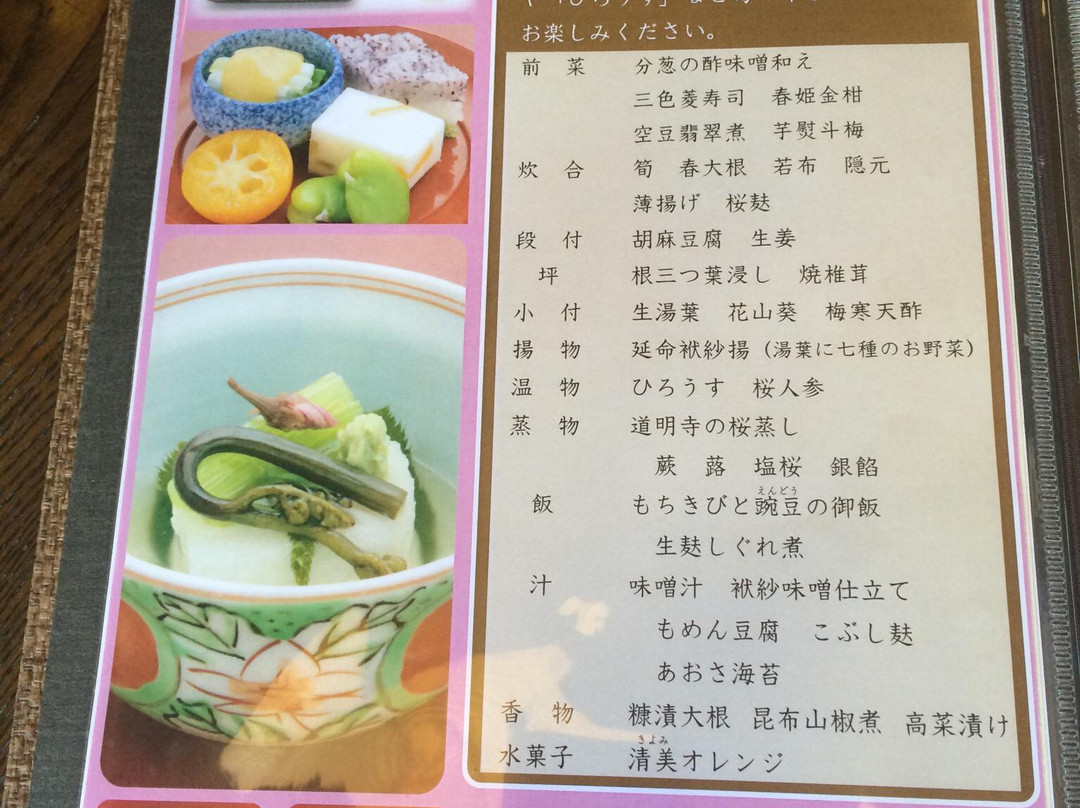 お楽しみください。
前菜 分葱の酢味噌和え
三色菱寿司 春姫金柑
空豆翡翠煮 芋熨斗梅
炊合 筍 春大根 若布 隠元
薄揚げ 桜麸
段付 胡麻豆腐 生姜
坪 根三つ葉浸し 焼椎茸
小付 生湯葉 花山葵 梅寒天酢
揚物 延命袱紗揚（湯葉に七種のお野菜）
温物 ひろうす 桜人参
蒸物 道明寺の桜蒸し
蕨 蕗 塩桜 銀餡
えんどう
飯 もちきびと豌豆の御飯
生麸しぐれ煮
汁 味噌汁 袱紗味噌仕立て
もめん豆腐 こぶし麸
あおさ海苔
香物 糠漬大根 昆布山椒煮 高菜漬け
きよみ
水菓子 清美オレンジ